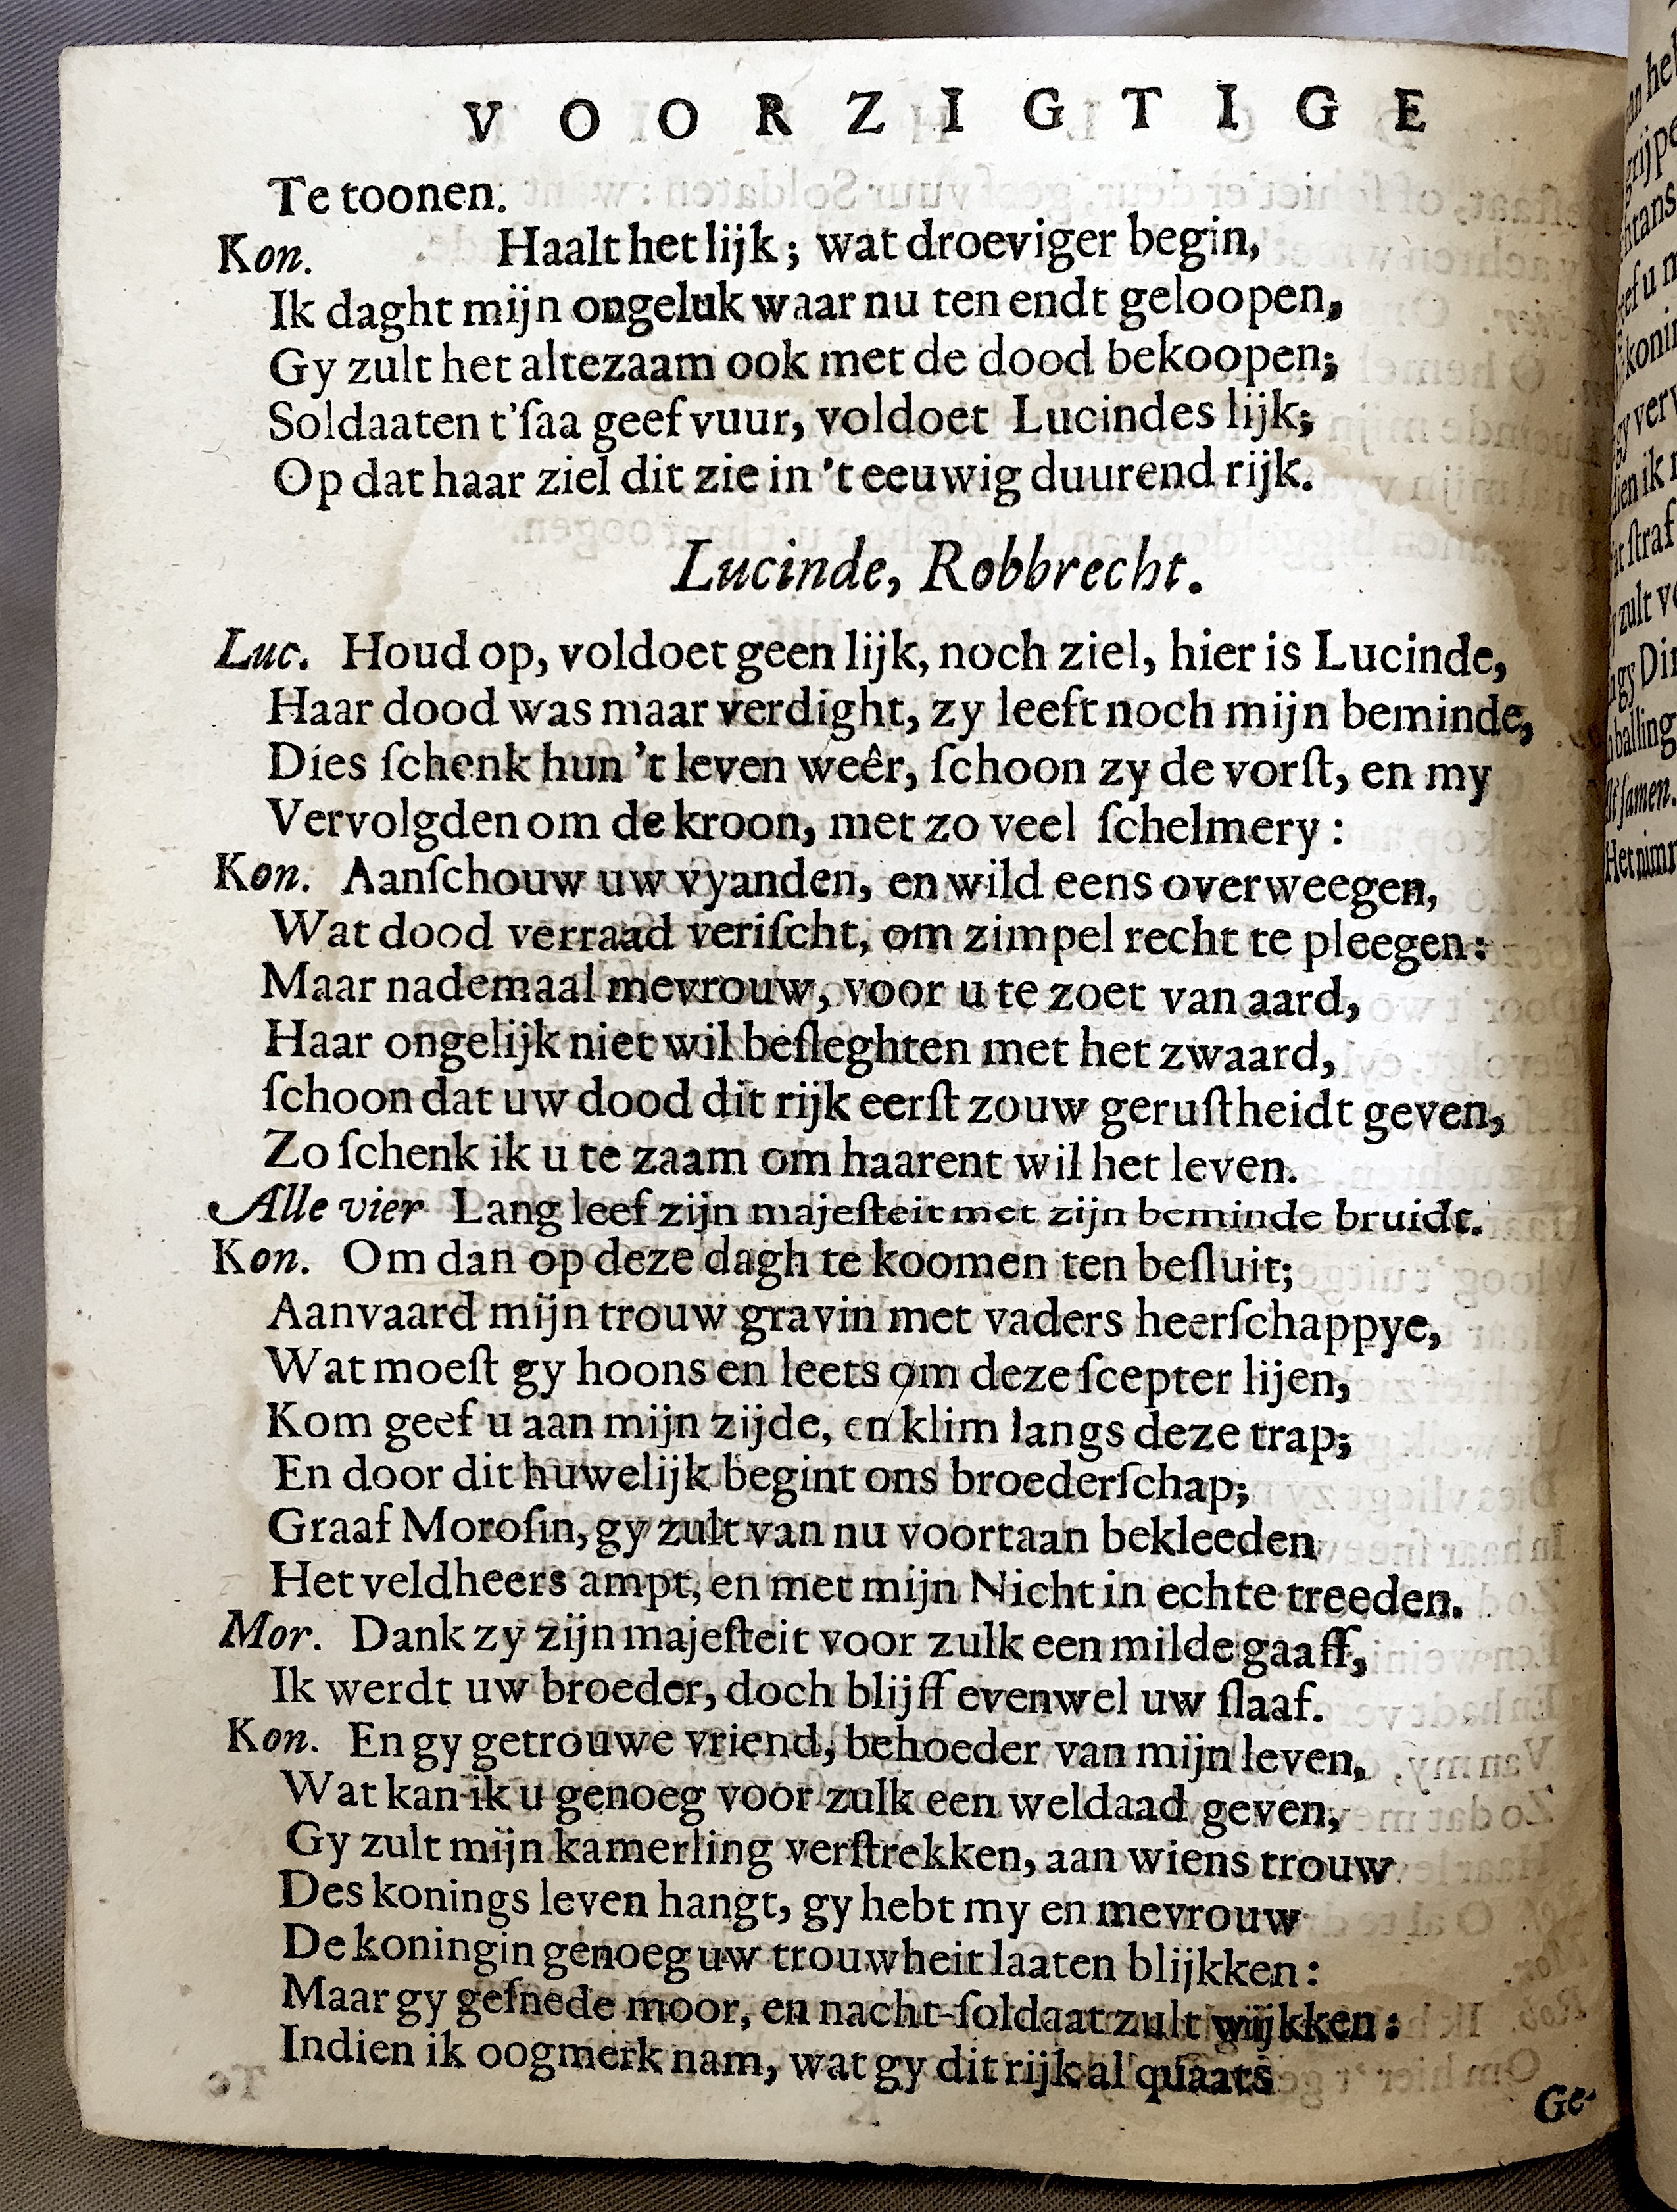 VOORZIGTIGE
Te toonen.
Kon. Haalt het lijk; wat droeviger begin,
Ik daght mijn ongeluk waar nu ten endt geloopen,
Gy zult het altezaam ook met de dood bekoopen;
Soldaaten t'ſaa geef vuur, voldoet Lucindes lijk;
Op dat haar ziel dit zie in 't eeuwig duurend rijk.
Lucinde, Robbrecht.
Luc. Houd op, voldoet geen lijk, noch ziel, hier is Lucinde,
Haar dood was maar verdight, zy leeft noch mijn beminde,
Dies ſchenk hun 't leven weêr, ſchoon zy de vorſt, en my
Vervolgden om de kroon, met zo veel ſchelmery:
Kon. Aanſchouw uw vyanden, en wild eens overweegen,
Wat dood verraad veriſcht, om zimpel recht te pleegen:
Maar nademaal mevrouw, voor u te zoet van aard,
Haar ongelijk niet wil beſleghten met het zwaard,
ſchoon dat uw dood dit rijk eerſt zouw geruſtheidt geven,
Zo ſchenk ik u te zaam om haarent wil het leven.
Alle vier Lang leef zijn majeſteit met zijn beminde bruidt.
Kon. Om dan op deze dagh te koomen ten beſluit;
Aanvaard mijn trouw gravin met vaders heerſchappye,
Wat moeſt gy hoons en leets om deze ſcepter lijen,
Kom geef u aan mijn zijde, en klim langs deze trap;
En door dit huwelijk begint ons broederſchap;
Graaf Moroſin, gy zult van nu voortaan bekleeden
Het veldheers ampt, en met mijn Nicht in echte treeden.
Mor. Dank zy zijn majeſteit voor zulk een milde gaaff,
Ik werdt uw broeder, doch blijff evenwel uw ſlaaf.
Kon. En gy getrouwe vriend, behoeder van mijn leven,
Wat kan ik u genoeg voor zulk een weldaad geven,
Gy zult mijn kamerling verſtrekken, aan wiens trouw
Des konings leven hangt, gy hebt my en mevrouw
De koningin genoeg uw trouwheit laaten blijkken:
Maar gy geſnede moor, en nacht-ſoldaat zult wijkken:
Indien ik oogmerk nam, wat gy dit rijk al quaats
Ge-